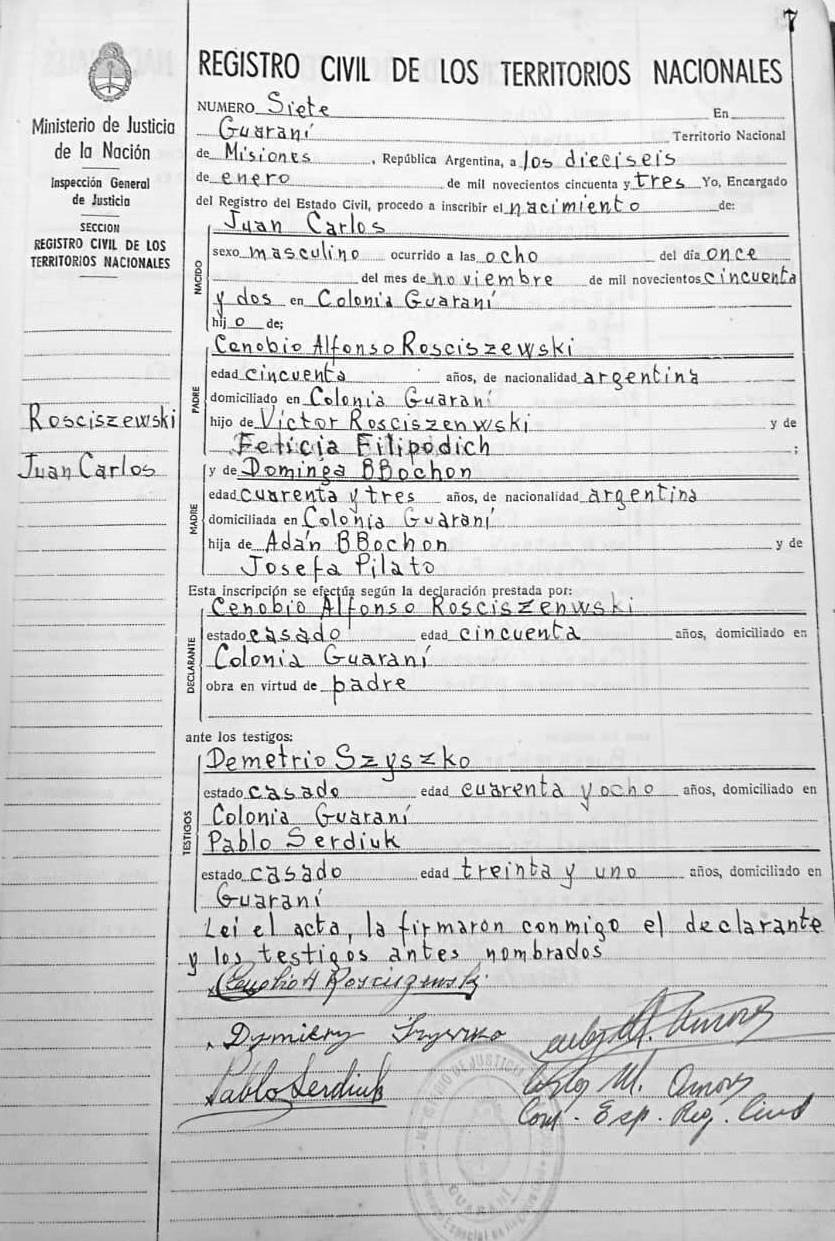 7
REGISTRO CIVIL DE LOS TERRITORIOS NACIONALES
Ministerio de Justicia
de la Nación
Inspección General
de Justicia
SECCION
REGISTRO CIVIL DE LOS
TERRITORIOS NACIONALES
Rosciszewski
Juan Carlos
NUMERO Siete En
Guaraní Territorio Nacional
de Misiones, República Argentina, a los dieciseis
de enero de mil novecientos cincuenta y tres Yo, Encargado
del Registro del Estado Civil, procedo a inscribir el nacimiento de:
NACIDO
Juan Carlos
sexo masculino ocurrido a las ocho del día once
del mes de noviembre de mil novecientos cincuenta
y dos en Colonia Guaraní
hijo de;
PADRE
Cenobio Alfonso Rosciszewski
edad cincuenta años, de nacionalidad argentina
domiciliado en Colonia Guaraní
hijo de Víctor Rosciszenwski y de
Feticia Filipodich ;
MADRE
y de Dominga BBochon
edad cuarenta y tres años, de nacionalidad argentina
domiciliada en Colonia Guaraní
hija de Adán BBochon y de
Josefa Pilato
Esta inscripción se efectúa según la declaración prestada por:
DECLARANTE
Cenobio Alfonso Rosciszenwski
estado casado edad cincuenta años, domiciliado en
Colonia Guaraní
obra en virtud de padre
ante los testigos:
TESTIGOS
Demetrio Szyszko
estado casado edad cuarenta y ocho años, domiciliado en
Colonia Guaraní
Pablo Serdiuk
estado casado edad treinta y uno años, domiciliado en
Guaraní
Leí el acta, la firmaron conmigo el declarante
y los testigos antes nombrados
Pablo Serdiuk
M.
Reg. Civil
GUARANI